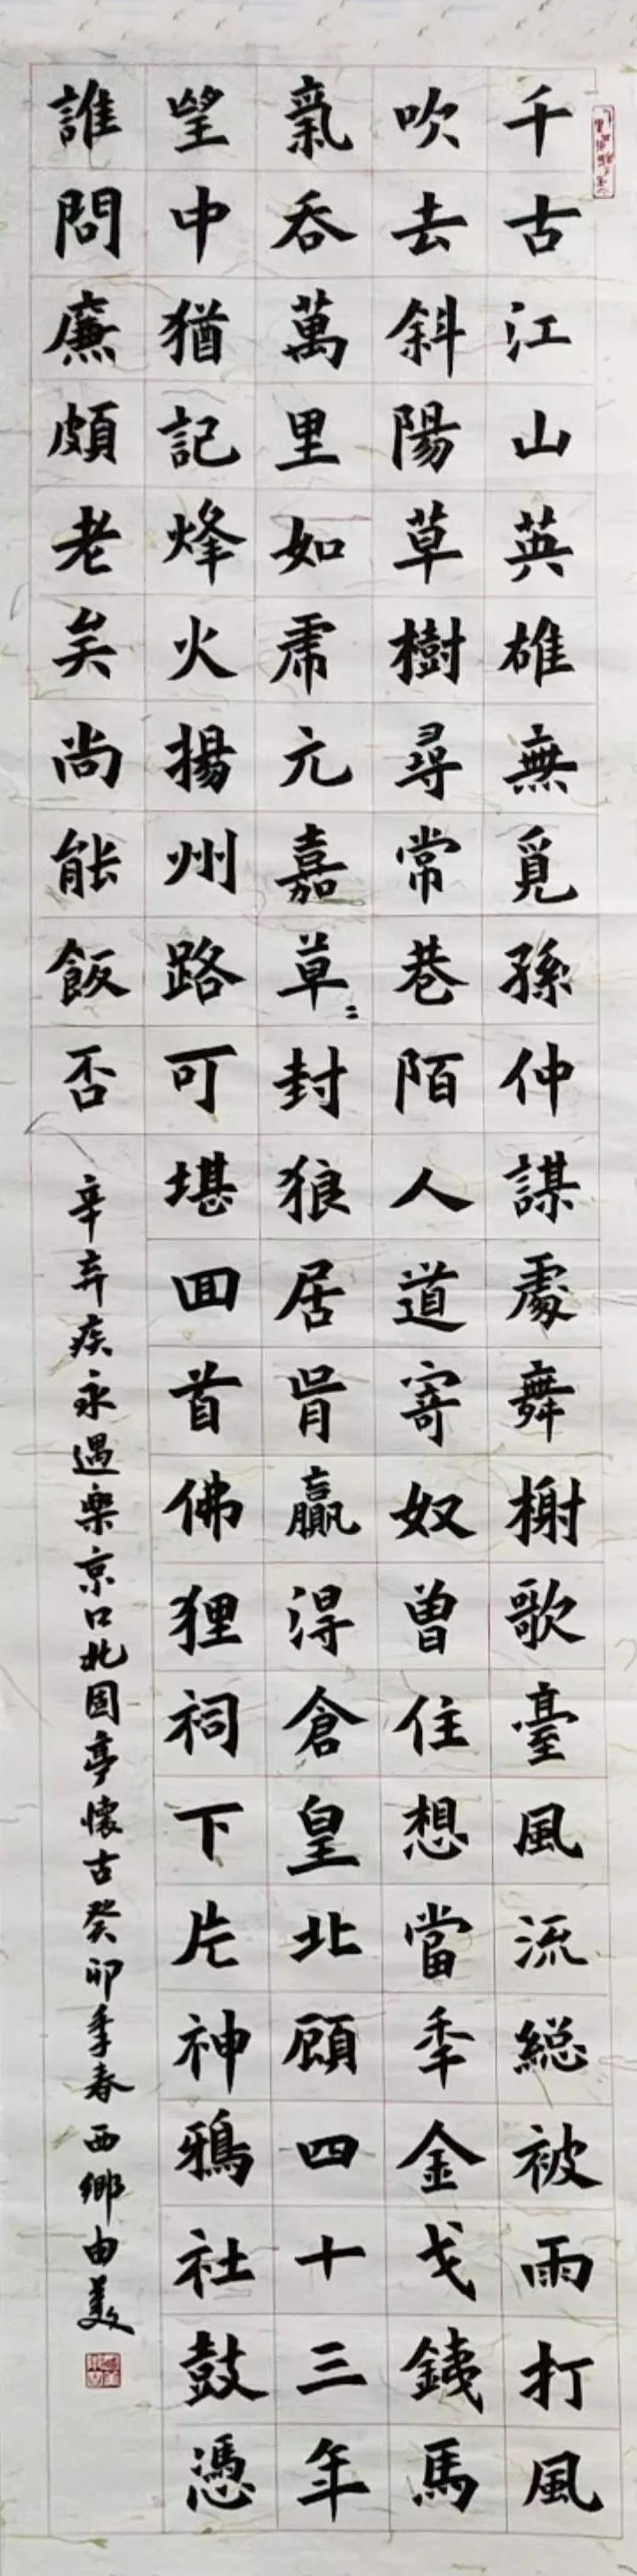 千古江山英雄無覓孫仲謀處舞榭歌臺風流総被雨打風
吹去斜陽草樹尋常巷陌人道寄奴曾住想當秊金戈銕馬
氣吞萬里如虎元嘉草〻封狼居胥贏得倉皇北顧四十三年
望中猶記烽火揚州路可堪回首佛狸祠下片神鴉社鼓憑
誰問廉頗老矣尚能飯否
辛弃疾永遇樂京口北固亭懷古癸卯季春西鄉由美